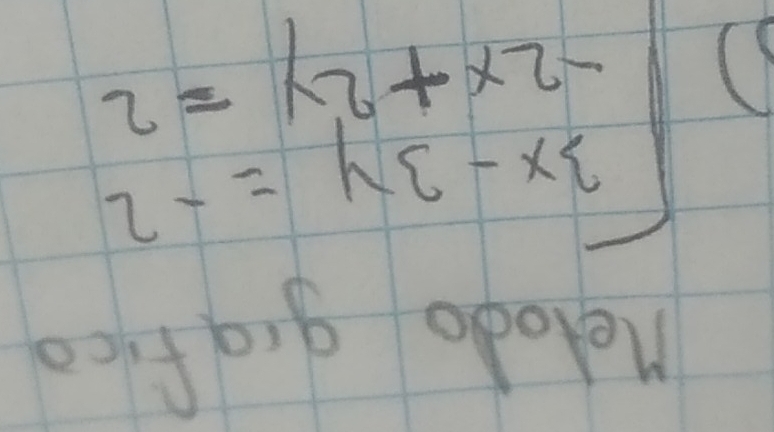 Metodo grafico
3x - 3y = -2
-2x + 2y = 2